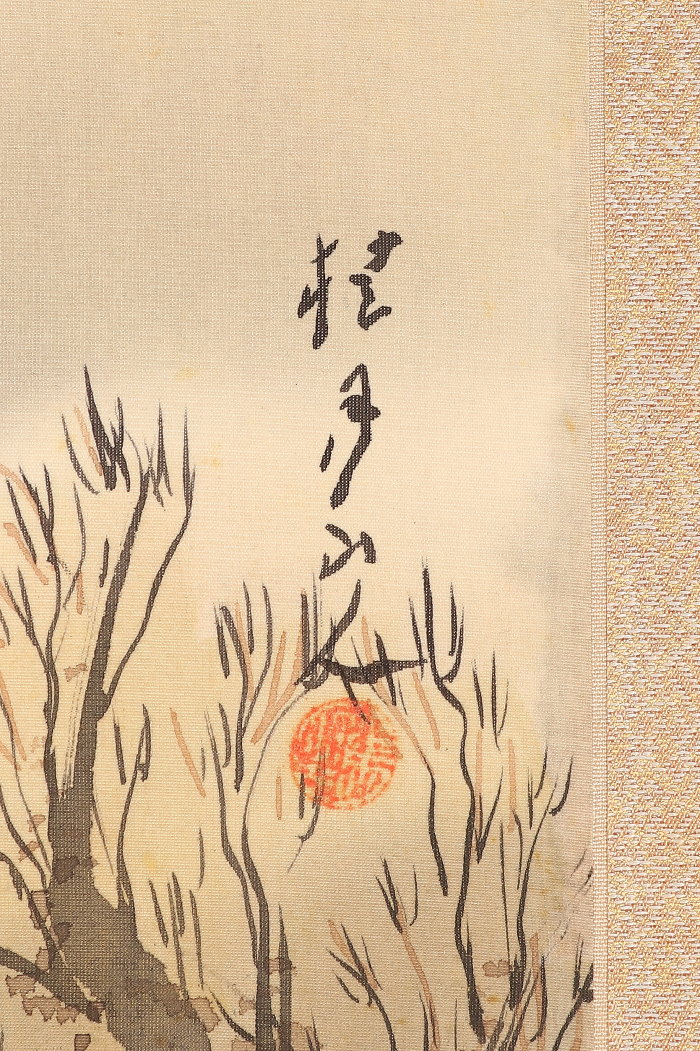 桂月山人